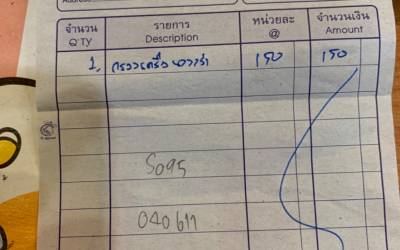 Address
จำนวน รายการ หน่วยละ จำนวนเงิน
Q'TY Description @ Amount
1. กรองเครื่อง 150 150
5095
040611